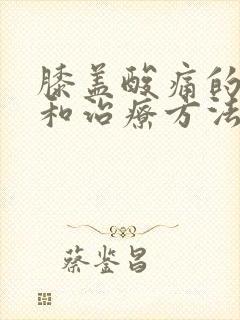 膝盖酸痛的
和治疗方法
蔡鉴昌